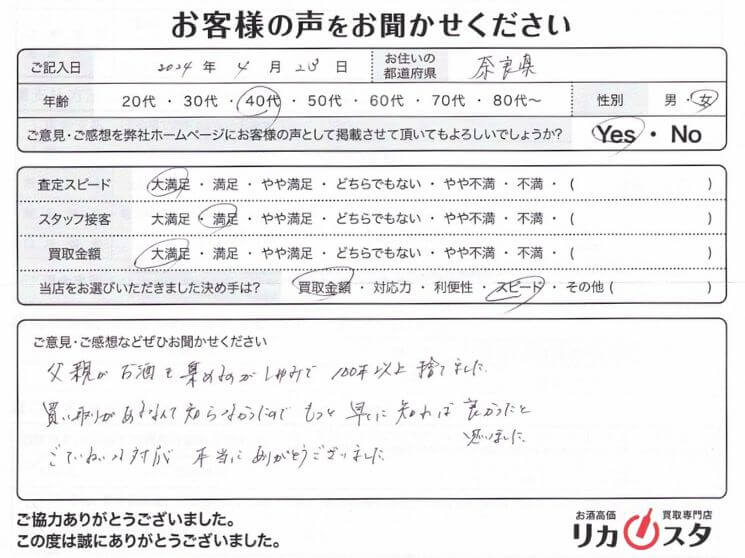 お客様の声をお聞かせください
ご記入日 2024 年 4 月 28 日 お住いの都道府県 奈良県
年齢 20代 ・ 30代 ・ 40代 ・ 50代 ・ 60代 ・ 70代 ・ 80代〜 性別 男 ・ 女
ご意見・ご感想を弊社ホームページにお客様の声として掲載させて頂いてもよろしいでしょうか? Yes ・ No
査定スピード 大満足 ・ 満足 ・ やや満足 ・ どちらでもない ・ やや不満 ・ 不満 ・ ( )
スタッフ接客 大満足 ・ 満足 ・ やや満足 ・ どちらでもない ・ やや不満 ・ 不満 ・ ( )
買取金額 大満足 ・ 満足 ・ やや満足 ・ どちらでもない ・ やや不満 ・ 不満 ・ ( )
当店をお選びいただきました決め手は? 買取金額 ・ 対応力 ・ 利便性 ・ スピード ・ その他 ( )
ご意見・ご感想などぜひお聞かせください
父親が お酒を 集めるのが しゅみで 100本以上 捨てました。
買い取りが あるなんて 知らなかったので もっと 早くに 知れば 良かったと
思いました。
ごていねいな対応 本当に ありがとうございました
ご協力ありがとうございました。
この度は誠にありがとうございました。
お酒高価 買取専門店
リカスタ